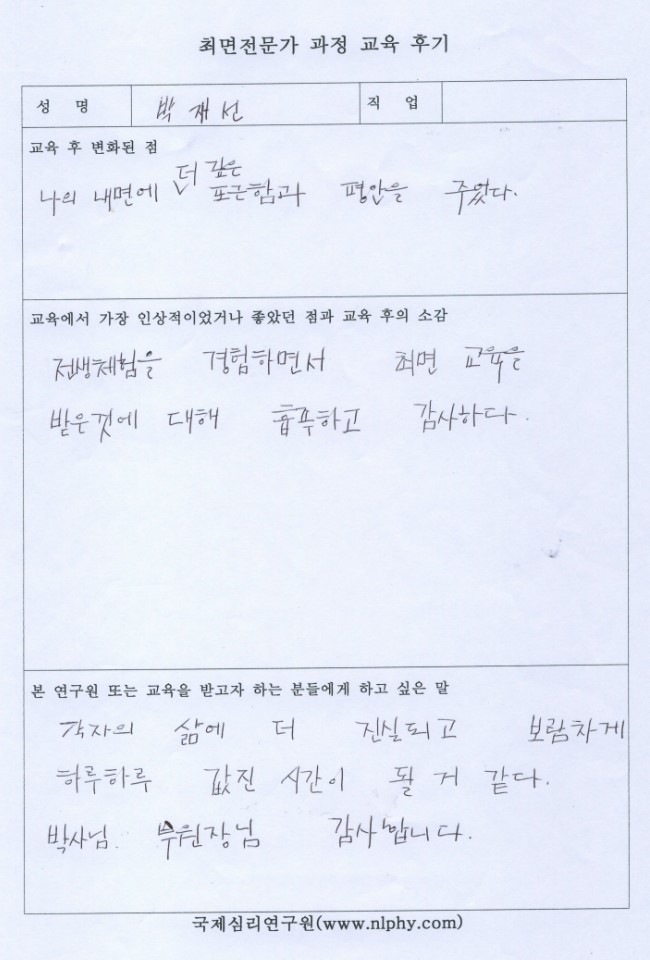 최면전문가 과정 교육 후기
성 명 박재선 직 업
교육 후 변화된 점
나의 내면에 더 깊은 포근함과 평안을 주었다.
교육에서 가장 인상적이었거나 좋았던 점과 교육 후의 소감
전생체험을 경험하면서 최면 교육을
받은것에 대해 흡족하고 감사하다.
본 연구원 또는 교육을 받고자 하는 분들에게 하고 싶은 말
각자의 삶에 더 진실되고 보람차게
하루하루 값진 시간이 될 거 같다.
박사님. 부원장님 감사합니다.
국제심리연구원(www.nlphy.com)